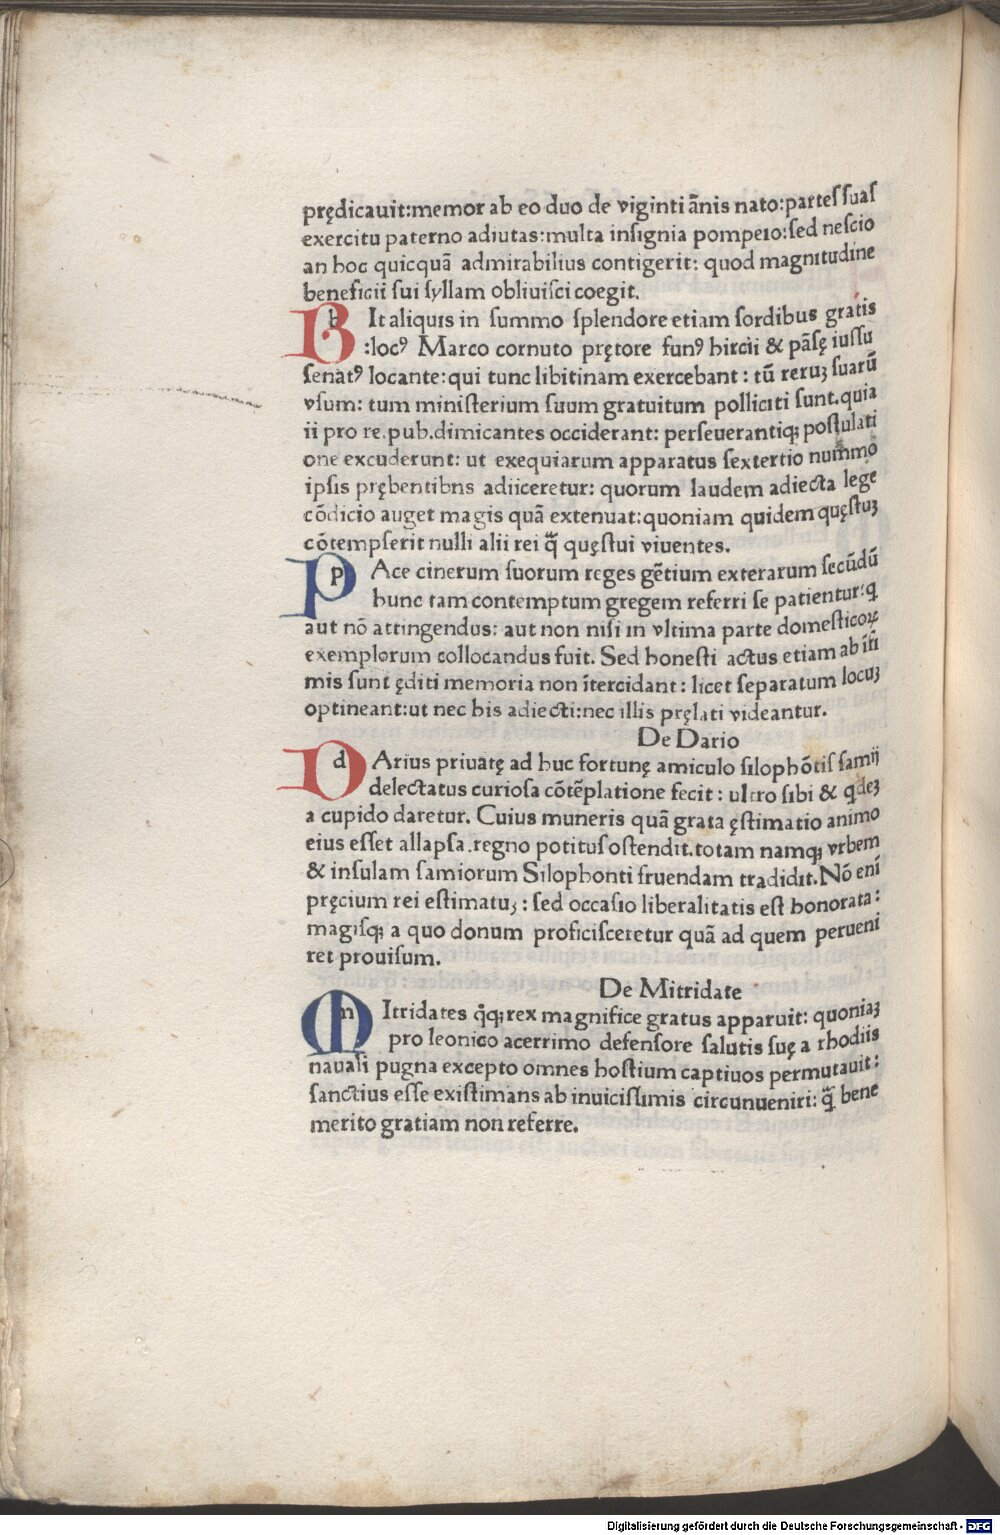 prędicauit:memor ab eo duo de viginti ãnis nato:partes suas
exercitu paterno adiutas:multa insignia pompeio:sed nescio
an hoc quicquã admirabilius contigerit: quod magnitudine
beneficii sui syllam obliuisci coegit.
B It aliquis in summo splendore etiam sordibus gratis
:locꝰ Marco cornuto prętore funꝰ hircii & pãsę iussu
senatꝰ locante:qui tunc libitinam exercebant: tũ reruꝫ suarũ
vsum: tum ministerium suum gratuitum polliciti sunt.quia
ii pro re.pub.dimicantes occiderant: perseuerantiqꝫ postulati
one excuderunt: ut exequiarum apparatus sextertio nummo
ipsis prębentibns adiiceretur: quorum laudem adiecta lege
cõdicio auget magis quã extenuat:quoniam quidem quęstuꝫ
cõtempserit nulli alii rei q̃ quęstui viuentes.
P Ace cinerum suorum reges gẽtium exterarum secũdũ
hunc tam contemptum gregem referri se patientur:q
aut nõ attingendus: aut non nisi in vltima parte domesticoꝝ
exemplorum collocandus fuit. Sed honesti actus etiam ab ĩfi
mis sunt ęditi memoria non ĩtercidant: licet separatum locuꝫ
optineant:ut nec his adiecti:nec illis pręlati videantur.
De Dario
D Arius priuatę ad huc fortunę amiculo silophõtis samij
delectatus curiosa cõtẽplatione fecit: ultro sibi & qdeꝫ
a cupido daretur. Cuius muneris quã grata ęstimatio animo
eius esset allapsa.regno potitus ostendit.totam namqꝫ vrbem
& insulam samiorum Silophonti fruendam tradidit.Nõ enĩ
pręcium rei estimatuꝫ: sed occasio liberalitatis est honorata:
magisqꝫ a quo donum proficisceretur quã ad quem perueni
ret prouisum.
De Mitridate
M Itridates q̃qꝫ rex magnifice gratus apparuit: quoniaꝫ
pro leonico acerrimo defensore salutis suę a rhodiis
nauali pugna excepto omnes hostium captiuos permutauit:
sanctius esse existimans ab inuicissimis circunueniri: q̃ bene
merito gratiam non referre.
Digitalisierung gefördert durch die Deutsche Forschungsgemeinschaft - DFG